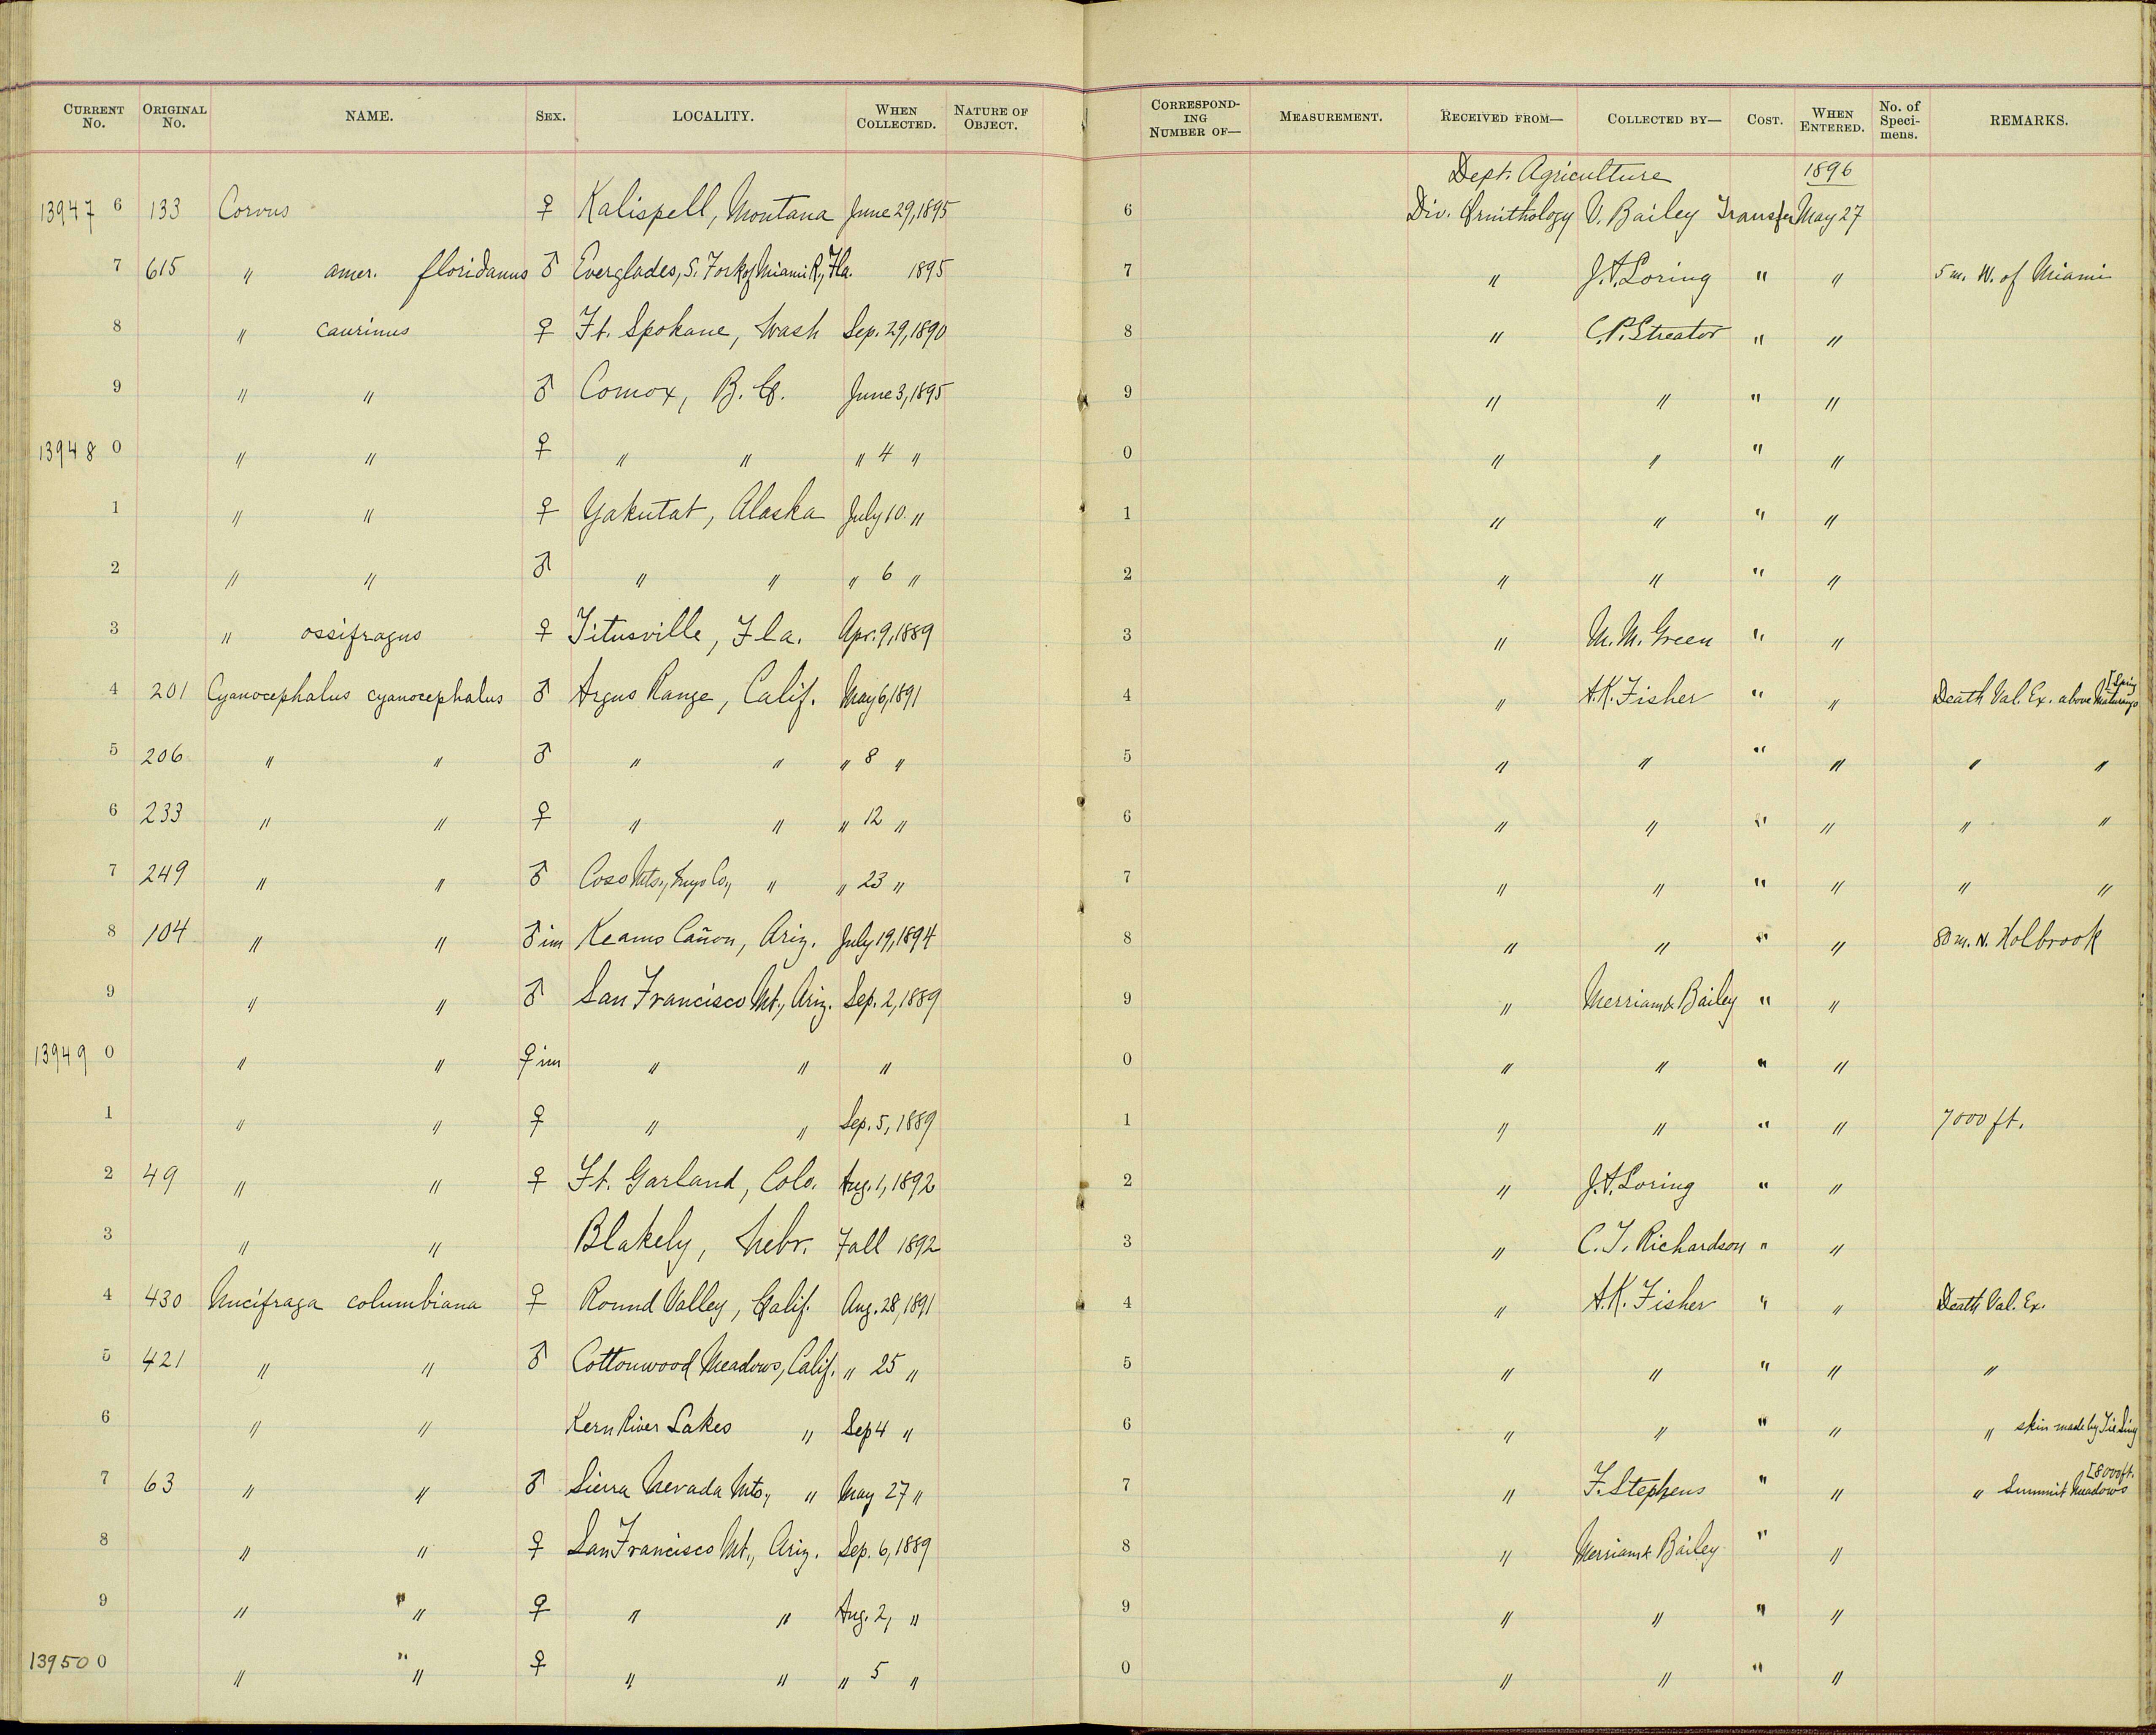 CURRENT No. ORIGINAL No. NAME. SEX. LOCALITY. WHEN COLLECTED. NATURE OF OBJECT. CORRESPONDING NUMBER OF— MEASUREMENT. RECEIVED FROM— COLLECTED BY— COST. WHEN ENTERED. No. of Specimens. REMARKS.
Dept. Agriculture 1896
13947 6 133 Corvus ♀ Kalispell, Montana June 29, 1895 6 Div. Ornithology V. Bailey Transfer May 27
7 615 " amer. floridanus ♂ Everglades, S. Fork of Miami R., Fla. 1895 7 " J.A. Loring " " 5 m. W. of Miami
8 " caurinus ♀ Ft. Spokane, Wash Sep. 29, 1890 8 " C.P. Streator " "
9 " " ♂ Comox, B. C. June 3, 1895 9 " " " "
13948 0 " " ♀ " " " 4 " 0 " " " "
1 " " ♀ Yakutat, Alaska July 10 " 1 " " " "
2 " " ♂ " " " 6 " 2 " " " "
3 " ossifragus ♀ Titusville, Fla. Apr. 9, 1889 3 " M. M. Green " "
4 201 Cyanocephalus cyanocephalus ♂ Argus Range, Calif. May 6, 1891 4 " A.K. Fisher " " Death Val. Ex. above Maturango [Spring
5 206 " " ♂ " " " 8 " 5 " " " " " "
6 233 " " ♀ " " " 12 " 6 " " " " " "
7 249 " " ♂ Coso Mts., Inyo Co., " " 23 " 7 " " " " " "
8 104 " " ♂ im Keams Cañon, Ariz. July 19, 1894 8 " " " " 80 m. N. Holbrook
9 " " ♂ San Francisco Mt., Ariz. Sep. 2, 1889 9 " Merriam & Bailey " "
13949 0 " " ♀ im " " " 0 " " " "
1 " " ♀ " " Sep. 5, 1889 1 " " " " 7000 ft.
2 49 " " ♀ Ft. Garland, Colo. Aug. 1, 1892 2 " J.A. Loring " "
3 " " Blakely, Nebr. Fall 1892 3 " C. T. Richardson " "
4 430 Nucifraga columbiana ♀ Round Valley, Calif. Aug. 28, 1891 4 " A.K. Fisher " " Death Val. Ex.
5 421 " " ♂ Cottonwood Meadows, Calif. " 25 " 5 " " " " "
6 " " Kern River Lakes " Sep 4 " 6 " " " " " skin made by Tie Sing
7 63 " " ♂ Sierra Nevada Mts., " May 27 " 7 " F. Stephens " " " Summit Meadows [8000 ft.
8 " " ♀ San Francisco Mt., Ariz. Sep. 6, 1889 8 " Merriam & Bailey " "
9 " " " ♀ " " Aug. 2, " 9 " " " "
13950 0 " " " ♀ " " " 5 " 0 " " " "